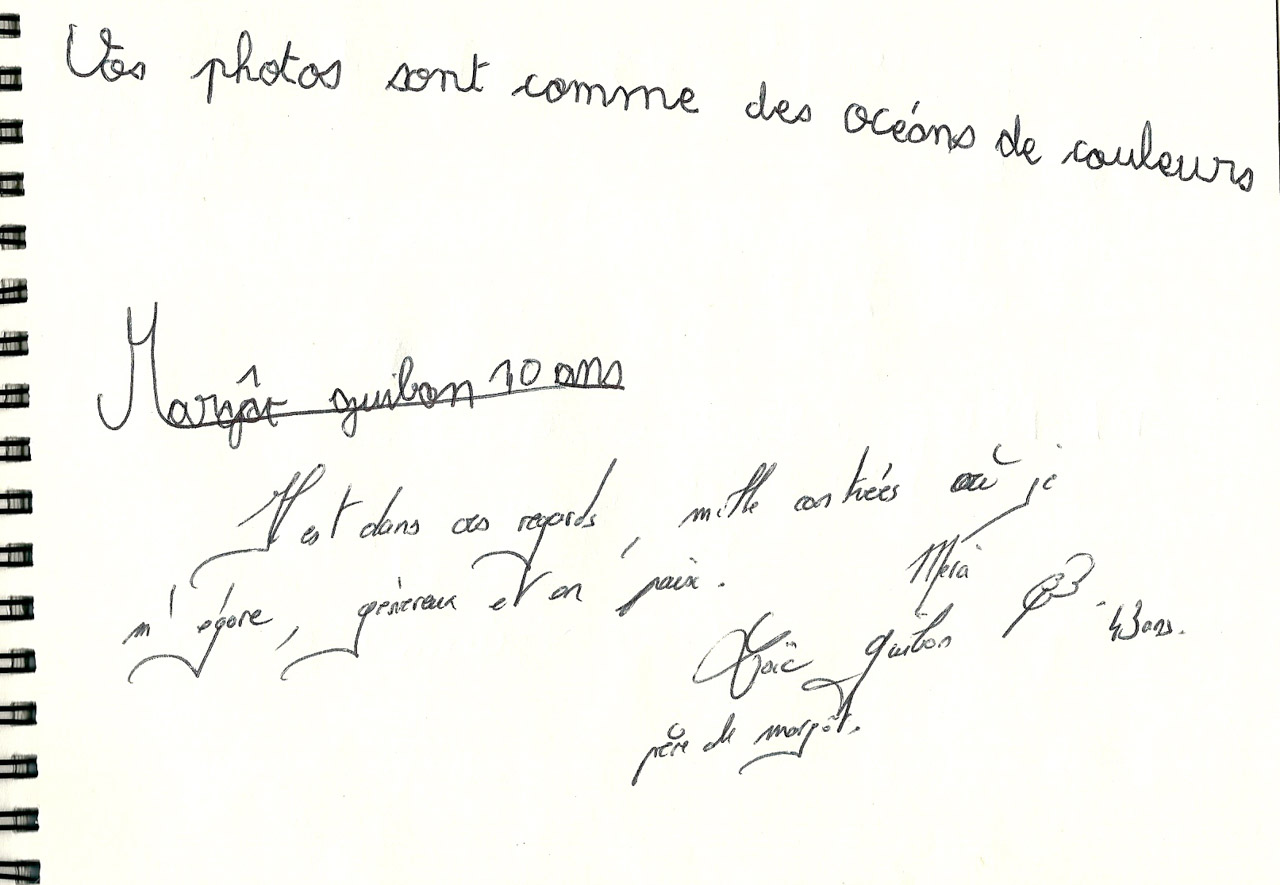 Vos photos sont comme des océans de couleurs
Margôt guibon 10 ans
Il est dans ces regards, mille contrées où je
m'égare, généreux et en paix.
Loïc guibon 43 ans.
père de margôt.